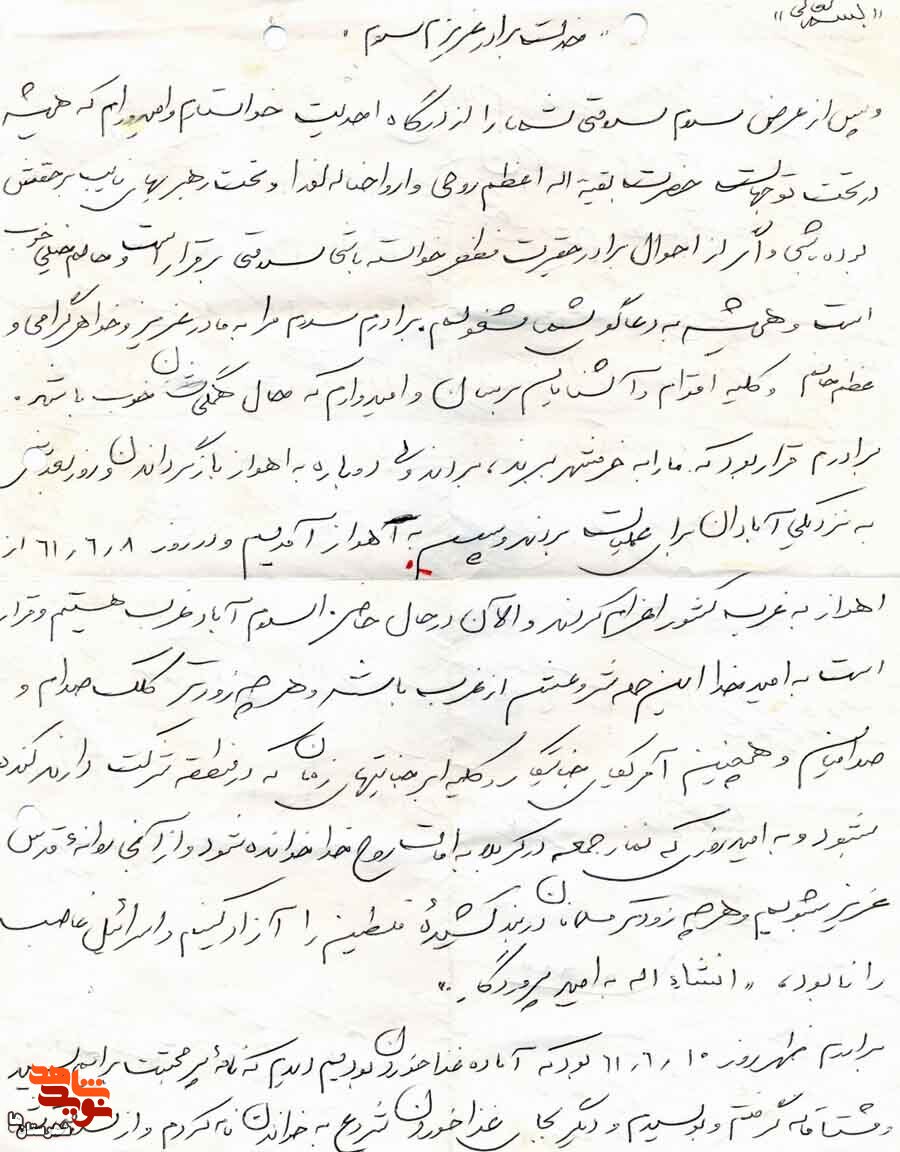 «بسمه تعالی»
«خدمت برادر عزیزم سلام»
و پس از عرض سلام سلامتی شما را از درگاه احدیت خواستارم و امیدوارم که همیشه
در تحت توجهات حضرت بقیة اله اعظم روحی و ارواحنا له الفدا و تحت رهبریهای نایب برحقش
بوده باشی و اگر از احوال برادر حقیرت خواسته باشی سلامتی برقرار است و حالم خیلی خوب
است و همیشه به دعاگوی شما مشغولیم. برادرم سلام مرا به مادر عزیز و خواهر گرامی و
و کلیه اقوام و آشنایانم برسان و امیدوارم که حال همگی‌شان خوب باشد.
برادرم قرار بود که ما را به خرمشهر ببرند، بردند ولی دوباره به اهواز بازگرداندن و روز بعدش
به نزدیکی آبادان برای عملیات بردند و سپس به اهواز آمدیم و در روز ۶۱٫۶٫۸ از
اهواز به غرب کشور اعزام کردند و الآن در حال حاضر اسلام آباد غرب هستیم و قرار
است به امید خدا این حمله شروعش از غرب باشد و هر چه زودتر کلک صدام و
صدامیان و همچنین آمریکای جنایتکار و کلیه ابرجنایتهای زمان که در منطقه شرکت دارند کنده
میشود و به امید روزی که نماز جمعه در کربلا به امامت روح خدا خوانده شود و از آنجا روانهٔ قدس
عزیز بشویم و هر چه زودتر مسلمانان دربند کشیدهٔ فلسطین را آزاد کنیم و اسرائیل غاصب
را نابود، «انشاء اله به امید پروردگار»
برادرم ظهر روز ۶۱٫۶٫۱۰ بود که آماده غذا خوردن بودیم دیدم که نامهٔ پر محبت برایم رسید
و مشتاقانه گرفتم و بوسیدم و دیگر بجای غذا خوردن شروع به خواندن نامه کردم و از
نوید شاهد
شهرستان ها